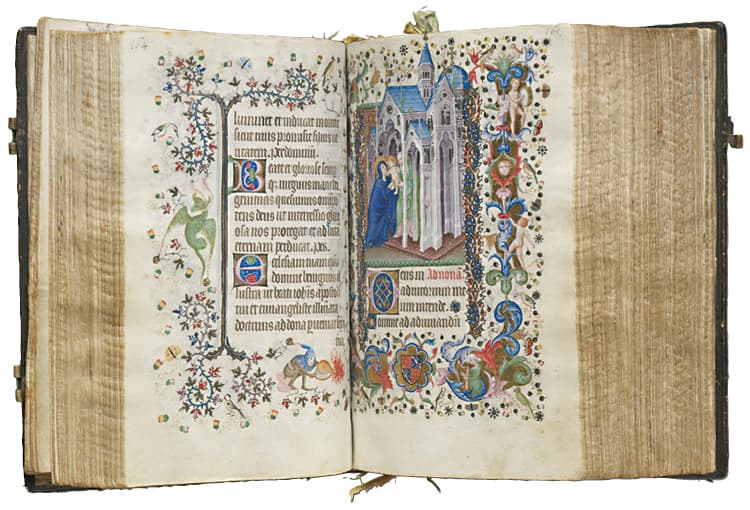 164
luminet et inducat in omnē
sicut tuus promisit filius ue
ritatem. Per dominum.
Beate et gloriose semp
q3 uirginis marie dei
genitricis quesumus omnipo
tens deus ut intercessio glori
osa nos protegat et ad uitā
eternam perducat. Per.
Ecclesiam tuam q̄s
domine benignus il
lustra ut beati ioh̄is aposto
li tui et euangeliste illumīata
doctrinis ad dona perueniat
165
Deus in Ad nonā.
adiutorium me
um intende.
Domine ad adiuuandū